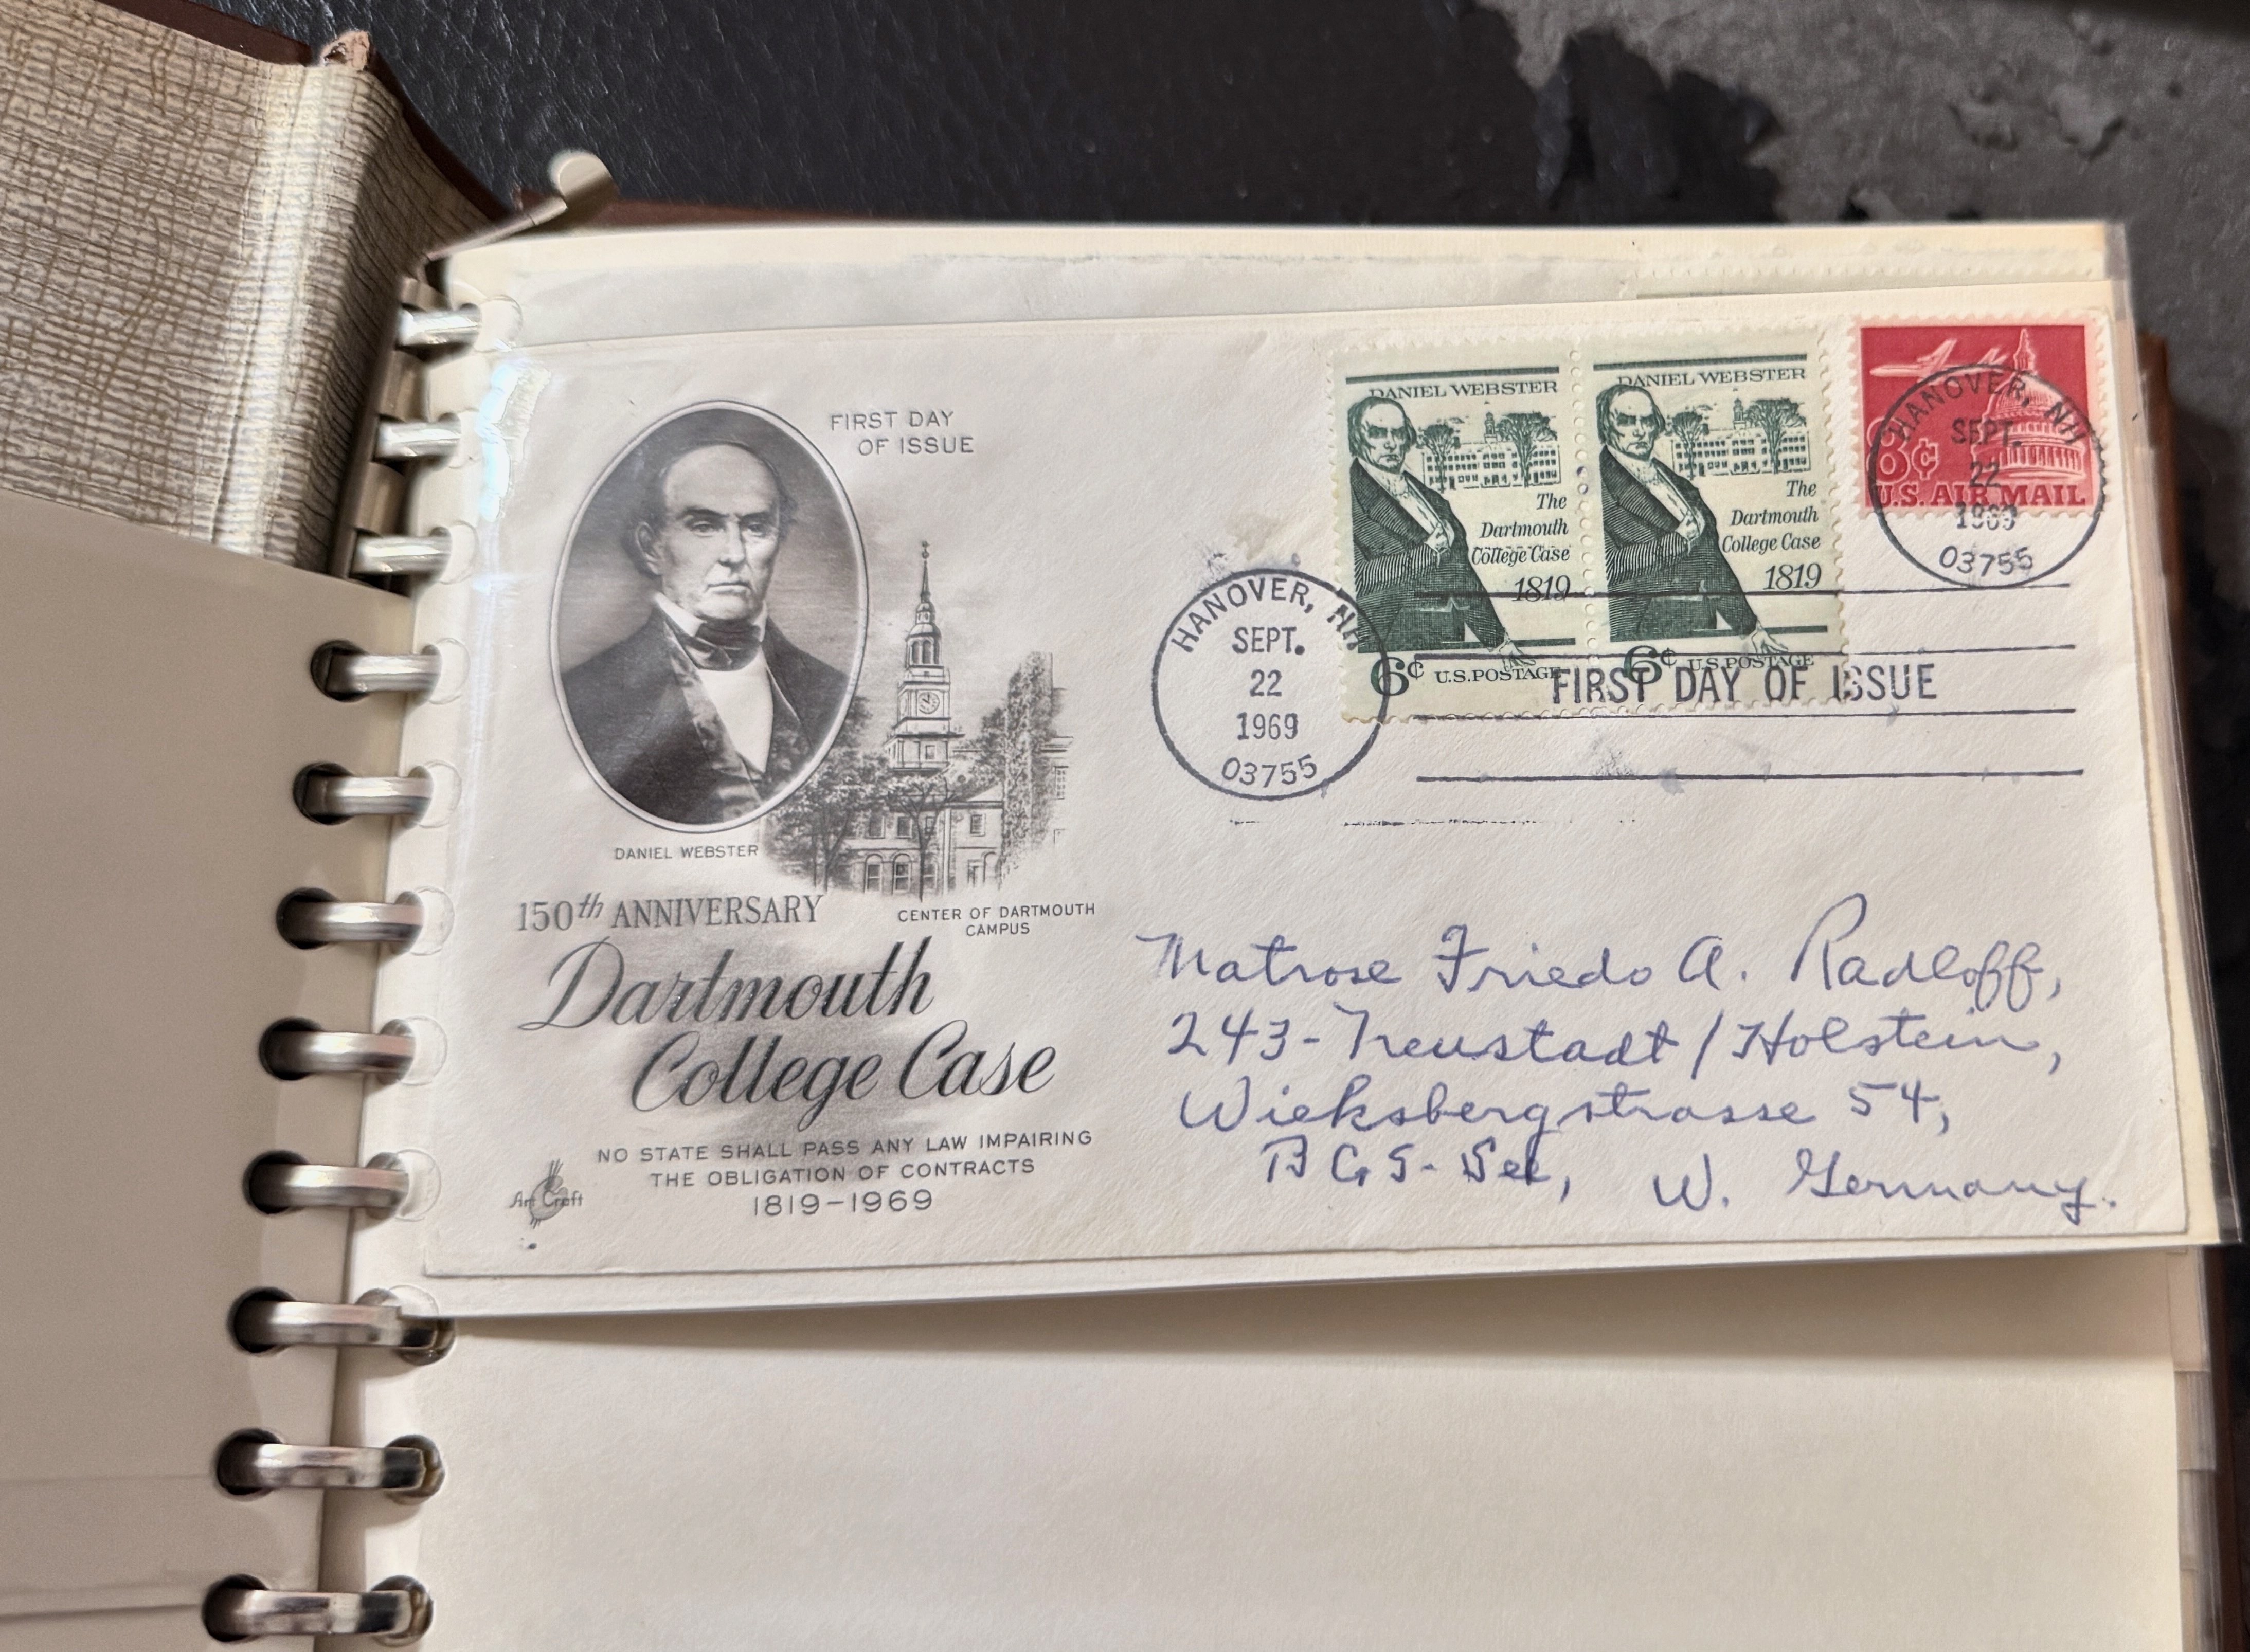 FIRST DAY
OF ISSUE
DANIEL WEBSTER
150th ANNIVERSARY
CENTER OF DARTMOUTH
CAMPUS
Dartmouth
College Case
NO STATE SHALL PASS ANY LAW IMPAIRING
THE OBLIGATION OF CONTRACTS
1819-1969
Art Craft
HANOVER, NH
SEPT.
22
1969
03755
DANIEL WEBSTER
The
Dartmouth
College Case
1819
6¢ U.S.POSTAGE
DANIEL WEBSTER
The
Dartmouth
College Case
1819
6¢ U.S.POSTAGE
FIRST DAY OF ISSUE
8¢
U.S. AIR MAIL
HANOVER, NH
SEPT.
22
1969
03755
Matrose Friedo A. Radloff,
243-Neustadt/Holstein,
Wieksbergstrasse 54,
BGS-See, W. Germany.